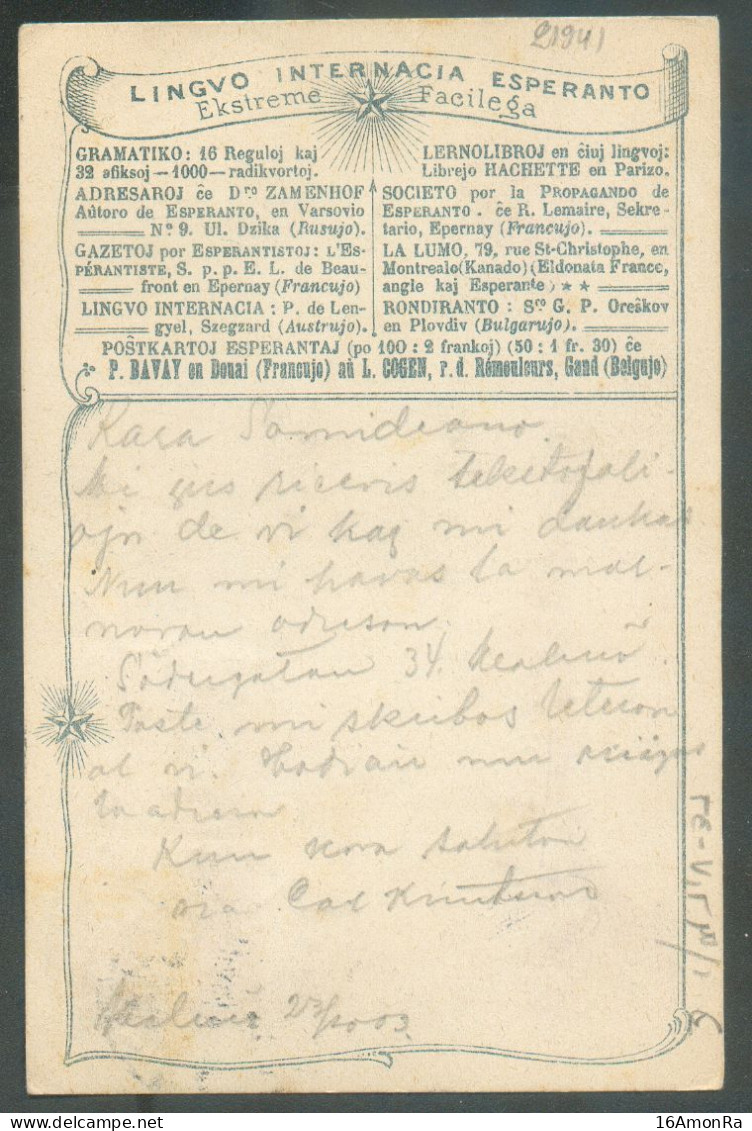 21941
LINGVO INTERNACIA ESPERANTO
Ekstreme Facilega
GRAMATIKO: 16 Reguloj kaj
32 afiksoj — 1000 — radikvortoj.
ADRESARO ĉe Dro ZAMENHOF
Aŭtoro de ESPERANTO, en Varsovio
No 9. Ul. Dzika (Rusujo).
GAZETOJ por ESPERANTISTOJ: L'ES-
PÉRANTISTE, S. p. p. E. L. de Beau-
front en Epernay (Francujo)
LINGVO INTERNACIA: P. de Len-
gyel, Szegzard (Austrujo).
LERNOLIBROJ en ĉiuj lingvoj:
Librejo HACHETTE en Parizo.
SOCIETO por la PROPAGANDO de
ESPERANTO. ĉe R. Lemaire, Sekre-
tario, Epernay (Francujo).
LA LUMO, 79, rue St-Christophe, en
Montrealo (Kanado) (Eldonata France,
angle kaj Esperante)
RONDIRANTO: Sro G. P. Oreŝkov
en Plovdiv (Bulgarujo).
POŜTKARTOJ ESPERANTAJ (po 100: 2 frankoj) (50: 1 fr. 30) ĉe
P. BAVAY en Douai (Francujo) aŭ L. COGEN, r. d. Rémouleurs, Gand (Belgujo)
Kara Samideano.
Mi ĵus ricevis
ojn de vi kaj mi dankas
Nun mi havas la mal-
novan adreson
34
Poste mi skribos leteron
al vi. nun
la adreson
Kun kora saluton
via Carl Knutson
16AmonRa